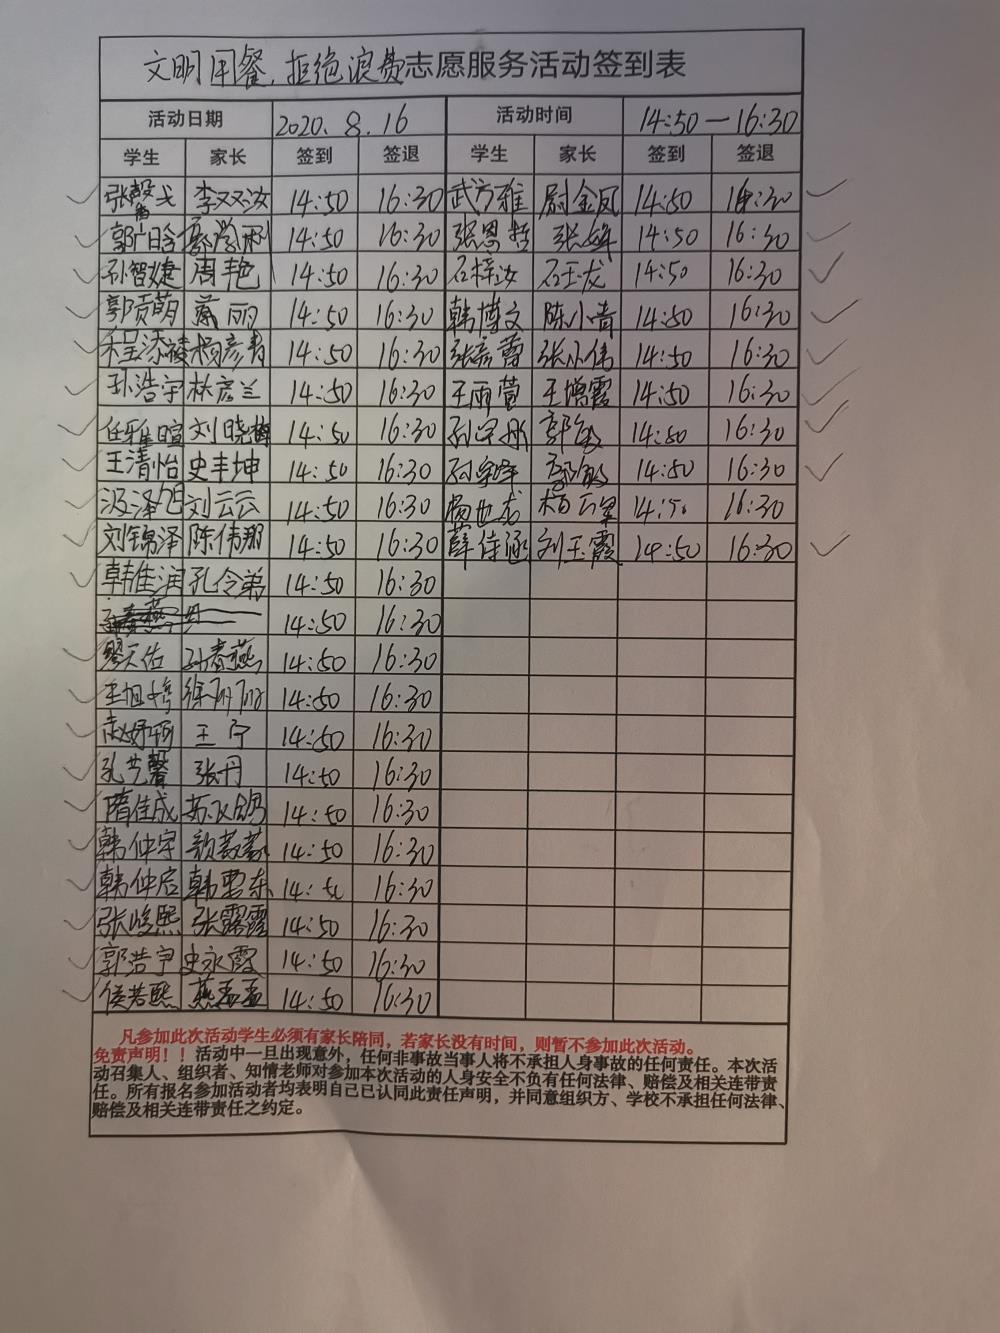 文明用餐、拒绝浪费志愿服务活动签到表
活动日期 2020.8.16 活动时间 14:50—16:30
学生 家长 签到 签退 学生 家长 签到 签退
李双汝 14:50 16:30 武方雅 尉金凤 14:50 16:30
14:50 16:30 张恩哲 14:50 16:30
孙智婕 周艳 14:50 16:30 石梓汝 石玉龙 14:50 16:30
郭贡萌 丽 14:50 16:30 韩博文 陈小青 14:50 16:30
程添禧 杨彦青 14:50 16:30 张彦蕾 张小伟 14:50 16:30
孙浩宇 林彦兰 14:50 16:30 王雨萱 王增霞 14:50 16:30
任雅暄 刘晓梅 14:50 16:30 郭敏 14:50 16:30
王清怡 史丰坤 14:50 16:30 郭敏 14:50 16:30
汲泽旭 刘云云 14:50 16:30 14:50 16:30
刘锦泽 陈伟翔 14:50 16:30 薛诗涵 刘玉霞 14:50 16:30
韩佳润 孔令弟 14:50 16:30
14:50 16:30
廖天佑 孙春燕 14:50 16:30
王旭婷 徐丽丽 14:50 16:30
赵妤珂 王宁 14:50 16:30
孔艺馨 张丹 14:50 16:30
隋佳成 苏又鸣 14:50 16:30
韩仲宇 颜蔷蔷 14:50 16:30
韩仲启 韩雪东 14:50 16:30
张峻熙 张露露 14:50 16:30
郭浩宇 史永霞 14:50 16:30
侯若熙 燕孟孟 14:50 16:30
凡参加此次活动学生必须有家长陪同，若家长没有时间，则暂不参加此次活动。
免责声明！！活动中一旦出现意外，任何非事故当事人将不承担人身事故的任何责任。本次活
动召集人、组织者、知情老师对参加本次活动的人身安全不负有任何法律、赔偿及相关连带责
任。所有报名参加活动者均表明自己已认同此责任声明，并同意组织方、学校不承担任何法律、
赔偿及相关连带责任之约定。